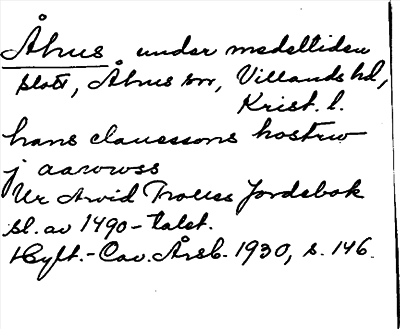 Åhus under medeltiden
slott, Åhus sn, Villands hd,
Krist. l.
hans clauessons hostrw
j aarowss
Ur Arvid Trolles Jordebok
sl. av 1490-talet.
Hylt.-Cav. Årsb. 1930, s. 146.